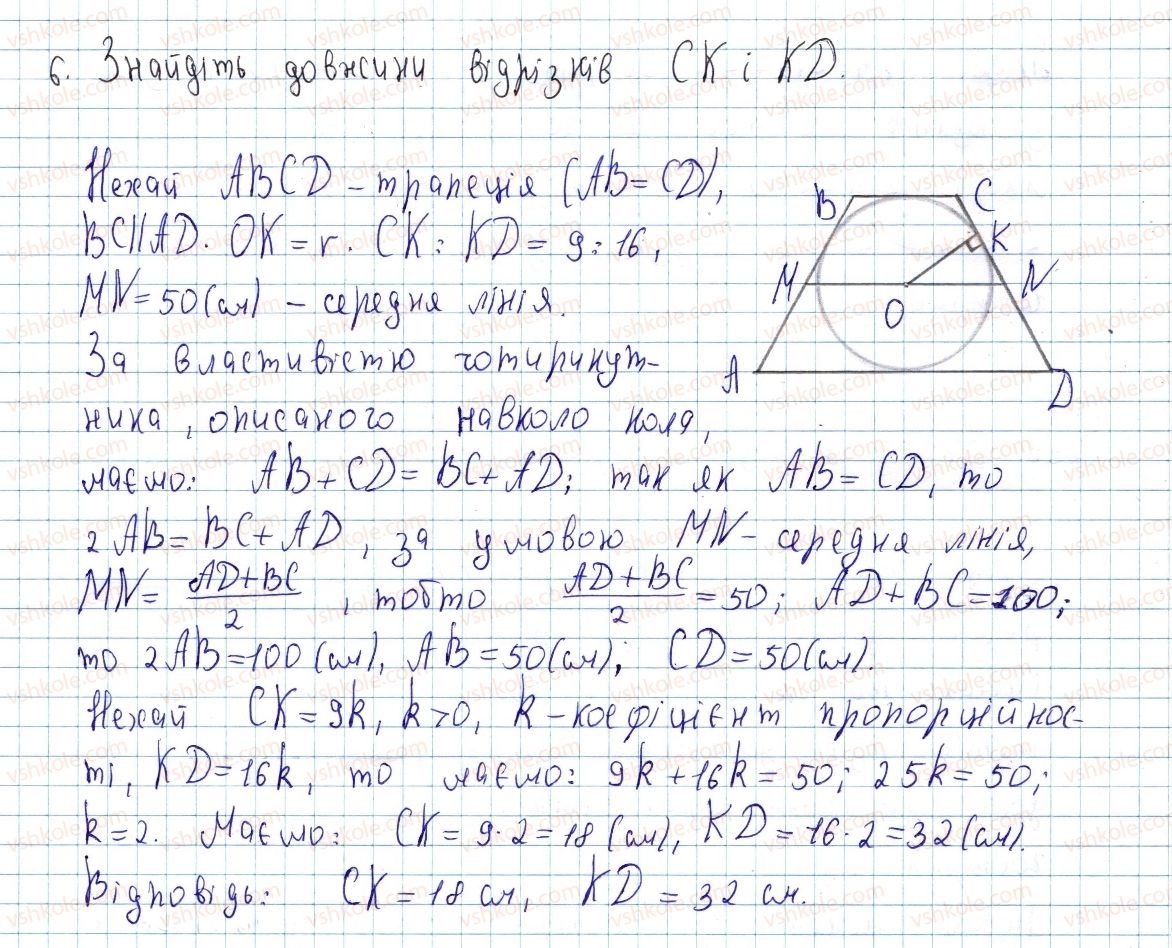 6. Знайдіть довжини відрізків CK і KD.
Нехай ABCD – трапеція (AB = CD),
BC||AD. OK = r. CK : KD = 9 : 16,
MN = 50 (см) – середня лінія.
За властивістю чотирикут-
ника, описаного навколо кола,
маємо: AB + CD = BC + AD; так як AB = CD, то
2AB = BC + AD, за умовою MN – середня лінія,
MN = (AD + BC)/2, тобто (AD + BC)/2 = 50; AD + BC = 100;
то 2AB = 100 (см), AB = 50 (см); CD = 50 (см).
Нехай CK = 9k, k > 0, k – коефіцієнт пропорційнос-
ті, KD = 16k, то маємо: 9k + 16k = 50; 25k = 50;
k = 2. Маємо: CK = 9 · 2 = 18 (см), KD = 16 · 2 = 32 (см).
Відповідь: CK = 18 см, KD = 32 см.
B C
K
M N
O
A D
vshkole.com